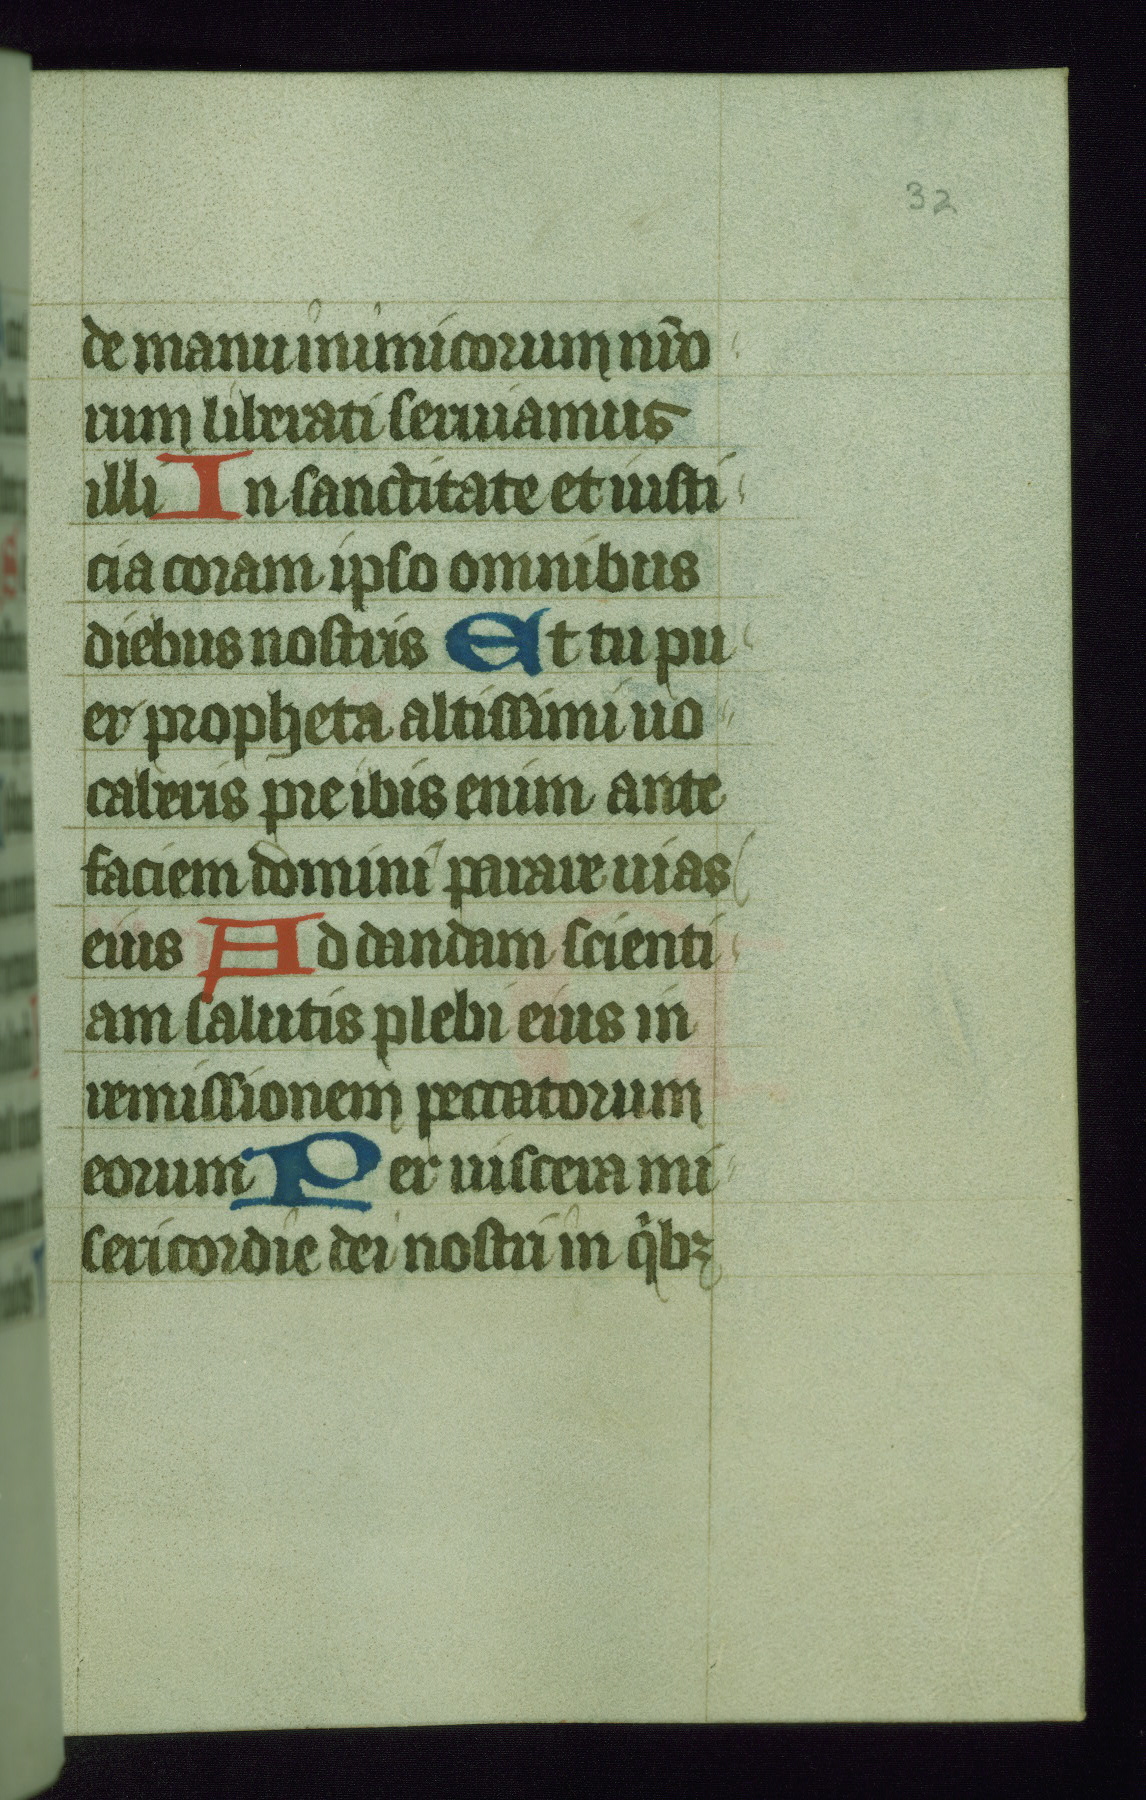 32
de manu inimicorum nr̄o
rum liberati seruiamus
illi In sanctitate et iusti
cia coram ipso omnibus
diebus nostris Et tu pu
er propheta altissimi uo
caberis pre ibis enim ante
faciem domini parare uias
eius Ad dandam scienti
am salutis plebi eius in
remissionem peccatorum
eorum Per uiscera mi
sericordie dei nostri in qͥbꝫ